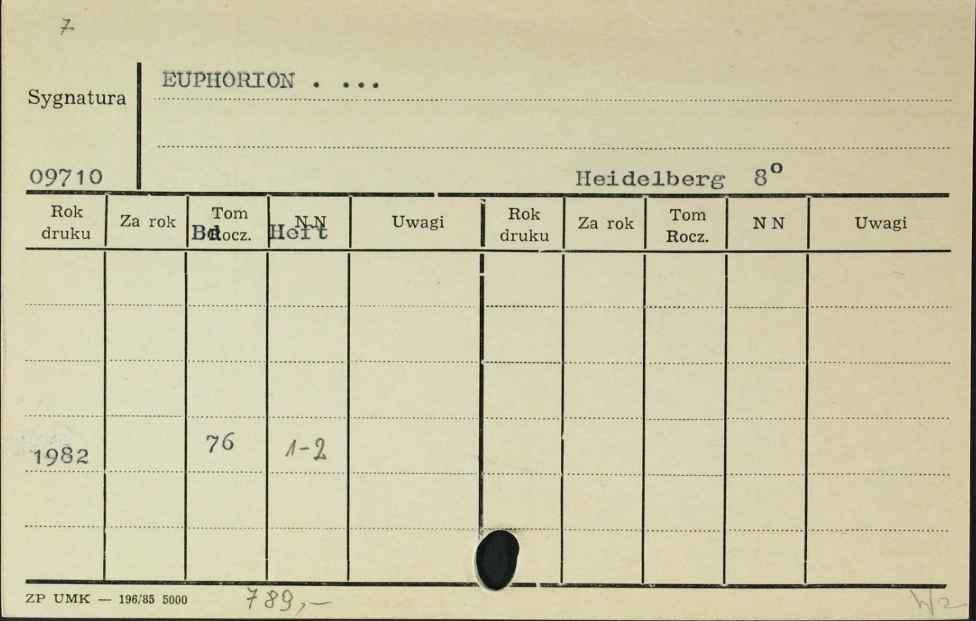 7
EUPHORION . ...
Sygnatura
09710 Heidelberg 8º
Rok druku Za rok Tom Rocz. Bd N N Heft Uwagi Rok druku Za rok Tom Rocz. N N Uwagi
1982 76 1-2
ZP UMK — 196/85 5000 789,—